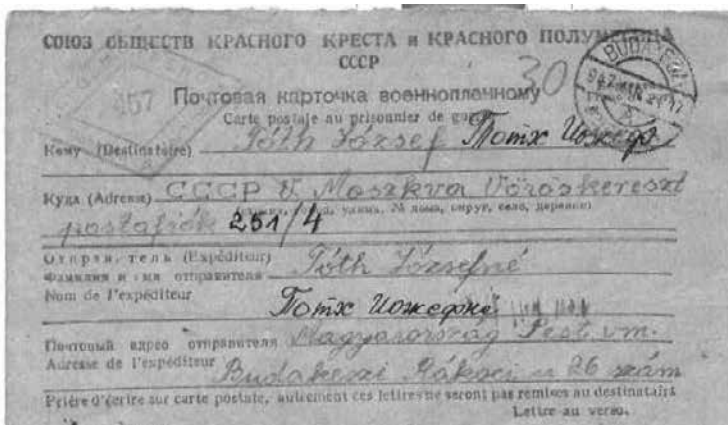 СОЮЗ ОБЩЕСТВ КРАСНОГО КРЕСТА и КРАСНОГО ПОЛУМЕСЯЦА
СССР
30
457
Почтовая карточка военнопленному
Carte postale au prisonnier de guerre
Кому (Destinataire) Tóth József Тотх Иожеф
Куда (Adresse) CCCP Moszkva Vöröskereszt
улица, № дома, округ, село, деревня
postafiók 251/4
Отправитель (Expéditeur)
Фамилия и имя отправителя Tóth Józsefné
Nom de l'expéditeur
Тотх Иожефне
Почтовый адрес отправителя Magyarország Pest. vm.
Adresse de l'expéditeur Budakeszi Rákóczi u 26 szám
Prière d'écrire sur carte postale, autrement ces lettres ne seront pas remises au destinataire
Lettre au verso.